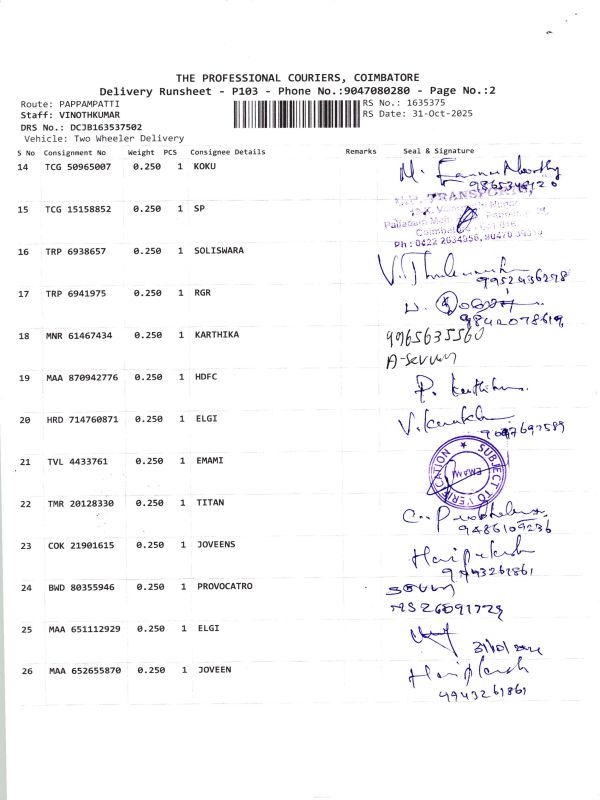 THE PROFESSIONAL COURIERS, COIMBATORE
Delivery Runsheet - P103 - Phone No.:9047080280 - Page No.:2
Route: PAPPAMPATTI RS No.: 1635375
Staff: VINOTHKUMAR RS Date: 31-Oct-2025
DRS No.: DCJB163537502
Vehicle: Two Wheeler Delivery
S No Consignment No Weight PCS Consignee Details Remarks Seal & Signature
14 TCG 50965007 0.250 1 KOKU
15 TCG 15158852 0.250 1 SP
TRANSPORT
Ph : 0422 2634956,
16 TRP 6938657 0.250 1 SOLISWARA
9952436298
17 TRP 6941975 0.250 1 RGR
9842078619
18 MNR 61467434 0.250 1 KARTHIKA 9965635560
19 MAA 870942776 0.250 1 HDFC
20 HRD 714760871 0.250 1 ELGI
21 TVL 4433761 0.250 1 EMAMI
SUBJECT TO VERIFICATION
EMAMI
22 TMR 20128330 0.250 1 TITAN
9486109236
23 COK 21901615 0.250 1 JOVEENS
24 BWD 80355946 0.250 1 PROVOCATRO
25 MAA 651112929 0.250 1 ELGI
26 MAA 652655870 0.250 1 JOVEEN
9943261861